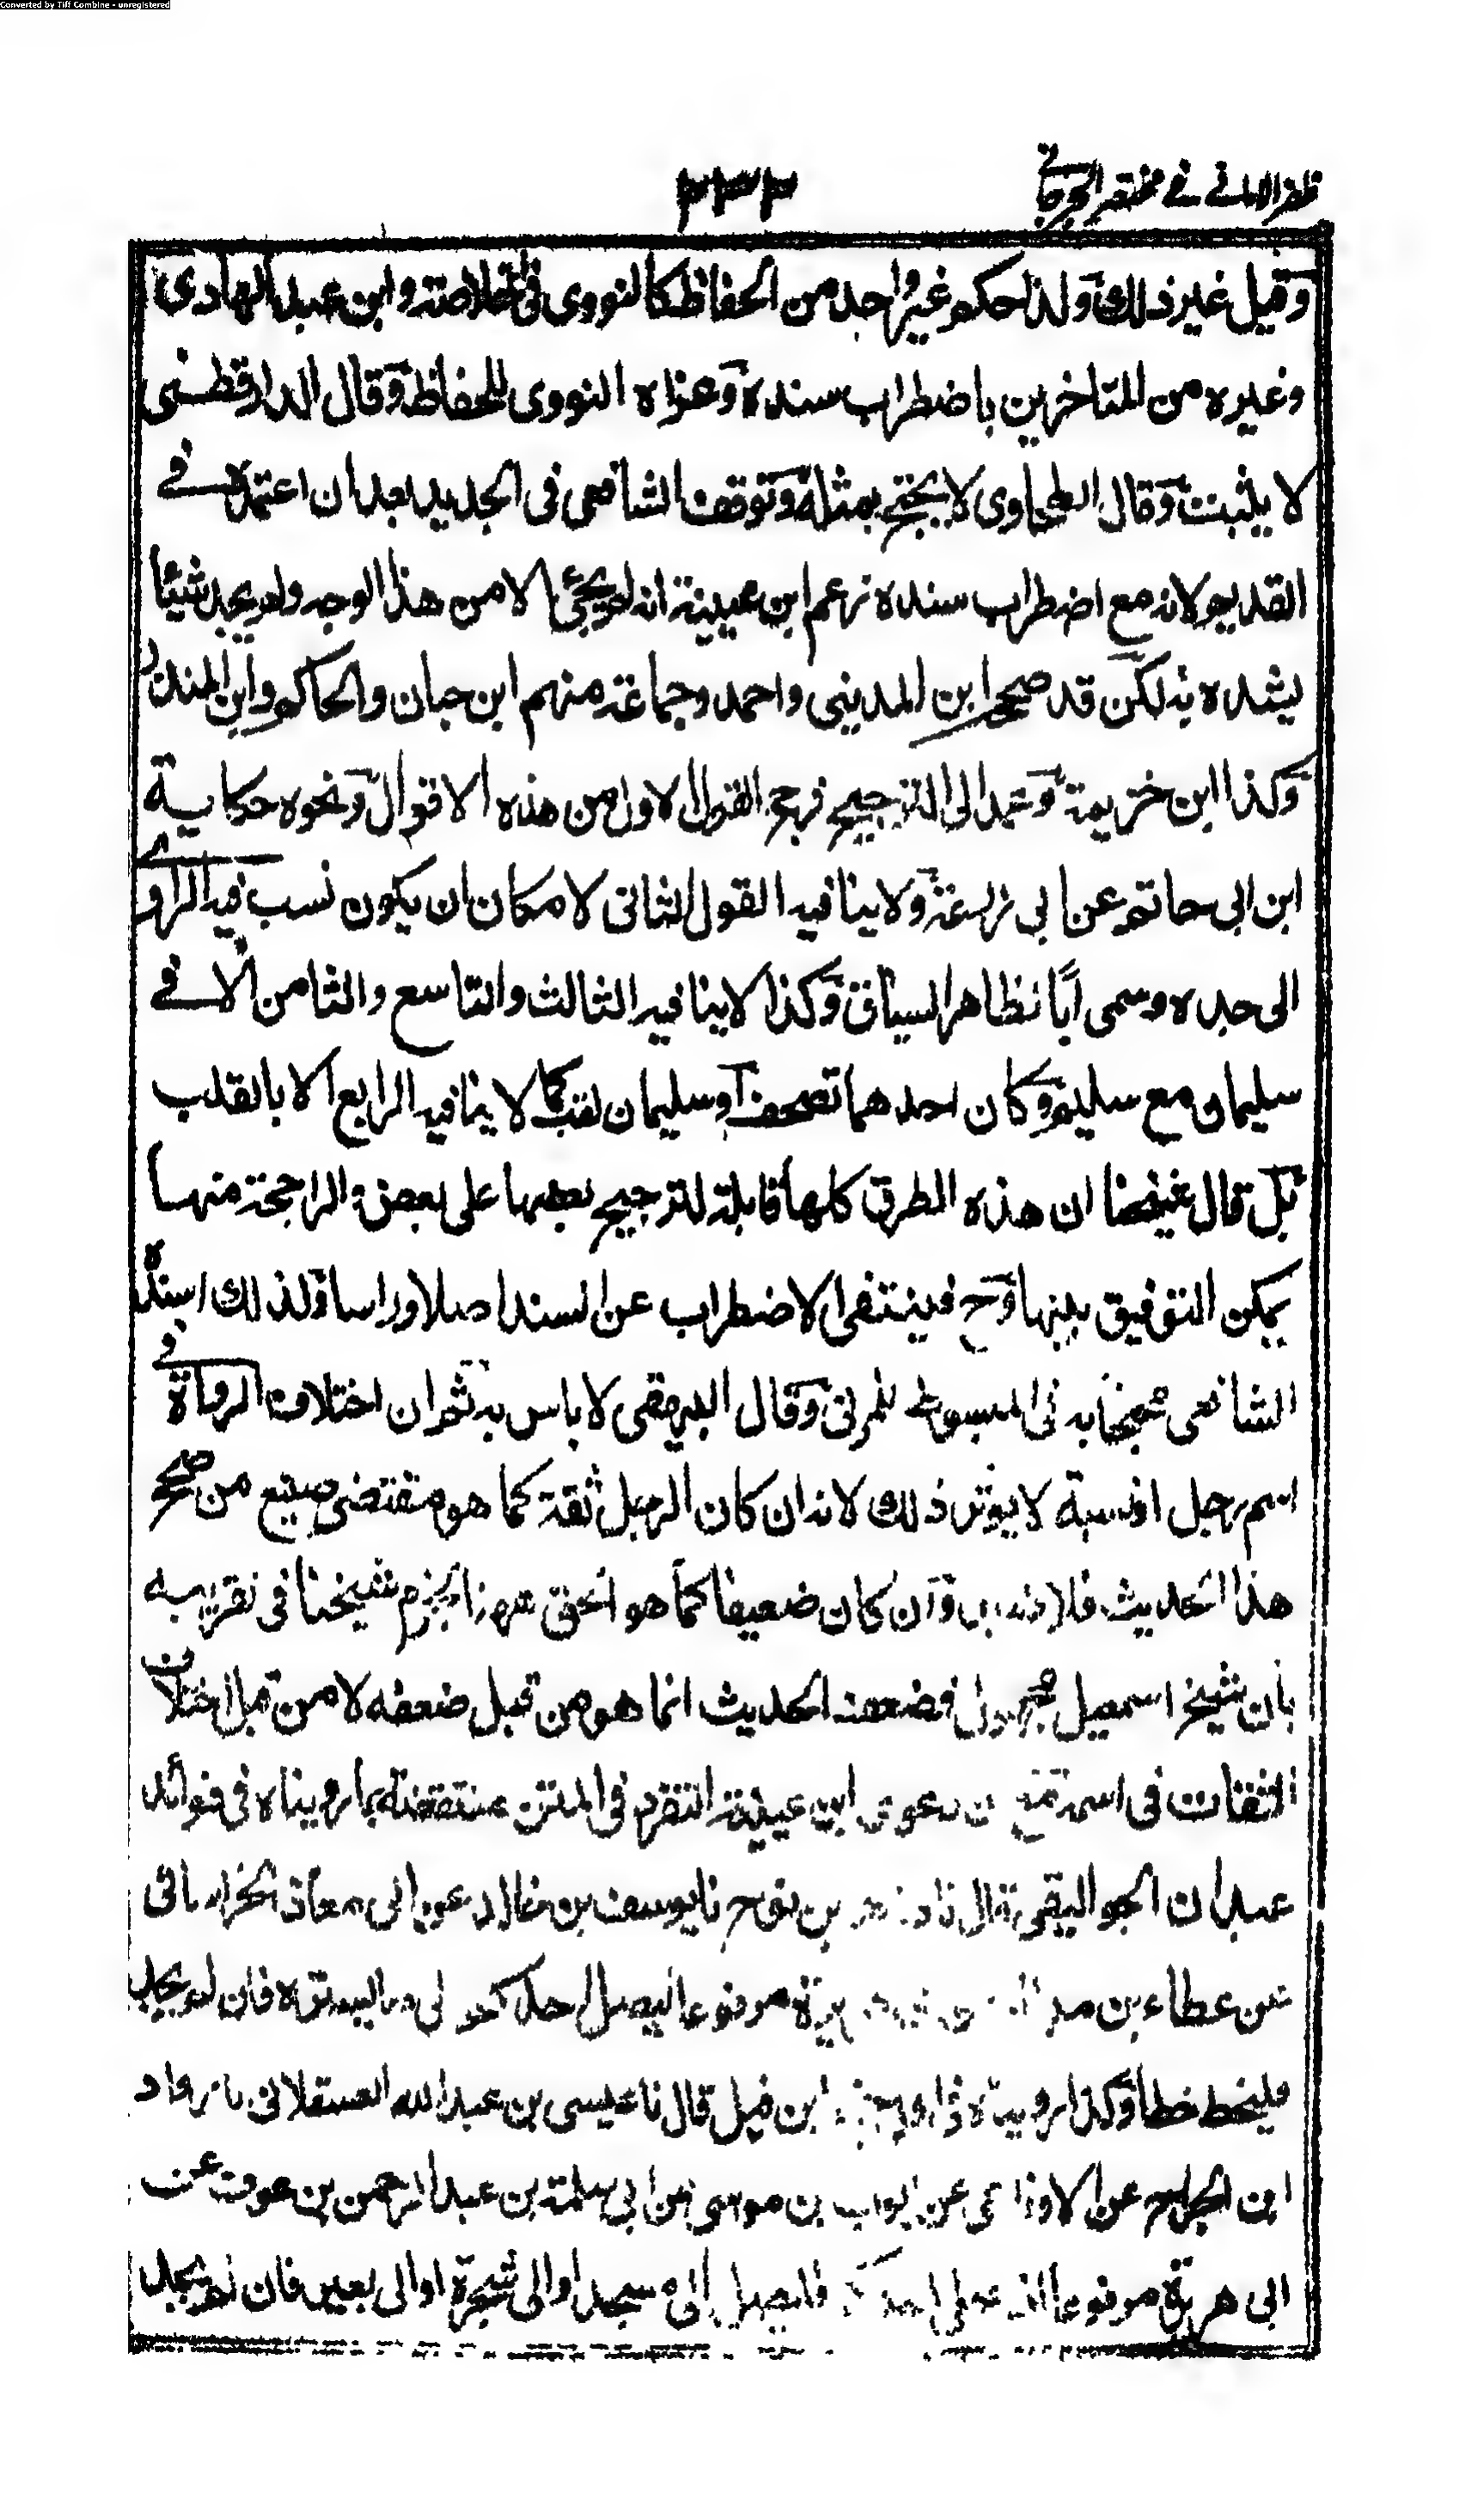 Converted by Tiff Combine - unregistered
ظفر الامانی فے مختصر الجرجانی
۲۳۲
وقيل غير ذلك ولذا حكم غير واحد من الحفاظ كالنووى فى الخلاصة وابن عبد الهادى
وغيره من المتاخرين باضطراب سنده وعزاه النووى للحفاظ وقال الدارقطنى
لا يثبت وقال الطحاوى لا يحتج بمثله وتوقف الشافعى فى الجديد بعد ان اعتمده فے
القديم ولانه مع اضطراب سنده زعم ابن عيينة انه لم يجئ الا من هذا الوجه ولم يجد شيئا
يشده به لكن قد صححه ابن المدينى واحمد وجماعة منهم ابن حبان والحاكم وابن المنذر
وكذا ابن خزيمة وعمد الى الترجيح فرجح القول الاول من هذه الاقوال ونحوه حكاية
ابن ابى حاتم عن ابى زرعة ولا ينافيه القول الثانى لامكان ان يكون نسب فيه الراوى
الى جده وسمى ابا لظاهر السياق وكذا لا ينافيه الثالث والتاسع والثامن الا فے
سليمان مع سليم وكان احدهما تصحف او سليمان لقب كما لا ينافيه الرابع الا بالقلب
بل قال شيخنا ان هذه الطرق كلها قابلة لترجيح بعضها على بعض والراجحة منها
يمكن التوفيق بينها وح فينتفى الاضطراب عن السند اصلا وراسا ولذلك اسنده
الشافعى محتجا به فى المبسوط للمزنى وقال البيهقى لا باس به ثم ان اختلاف الرواة فے
اسم رجل او نسبه لا يوثر ذلك لانه ان كان الرجل ثقة كما هو مقتضى صنيع من صحح
هذا الحديث فلا ضير وان كان ضعيفا كما هو الحق هنا لجزم شيخنا فى تقريبه
بان شيخ اسمعيل مجهول فضعف الحديث انما هو من قبل ضعفه لا من قبل اختلاف
الثقات فى اسمه مع ان دعوى ابن عيينة التفرد فى المتن منتقضة بما رويناه فى فوائد
عبدان الجواليقى قال نا بن نوح نا يوسف بن خالد عن ابى معاذ الخراسانى
عن عطاء بن هريرة مرفوعا ليصل احدكم الى ما يستره فان لم يجد
فليخط خطا وكذا رويناه ابن فيل قال نا عيسى بن عبد الله العسقلانى نا رواد
ابن الجراح عن الاوزاعى عن ايوب بن موسى عن ابى سلمة بن عبد الرحمن بن عوف عن
ابى هريرة مرفوعا اذا صلى احدكم فليصل الى مسجد او الى شجرة او الى بعير فان لم يجد